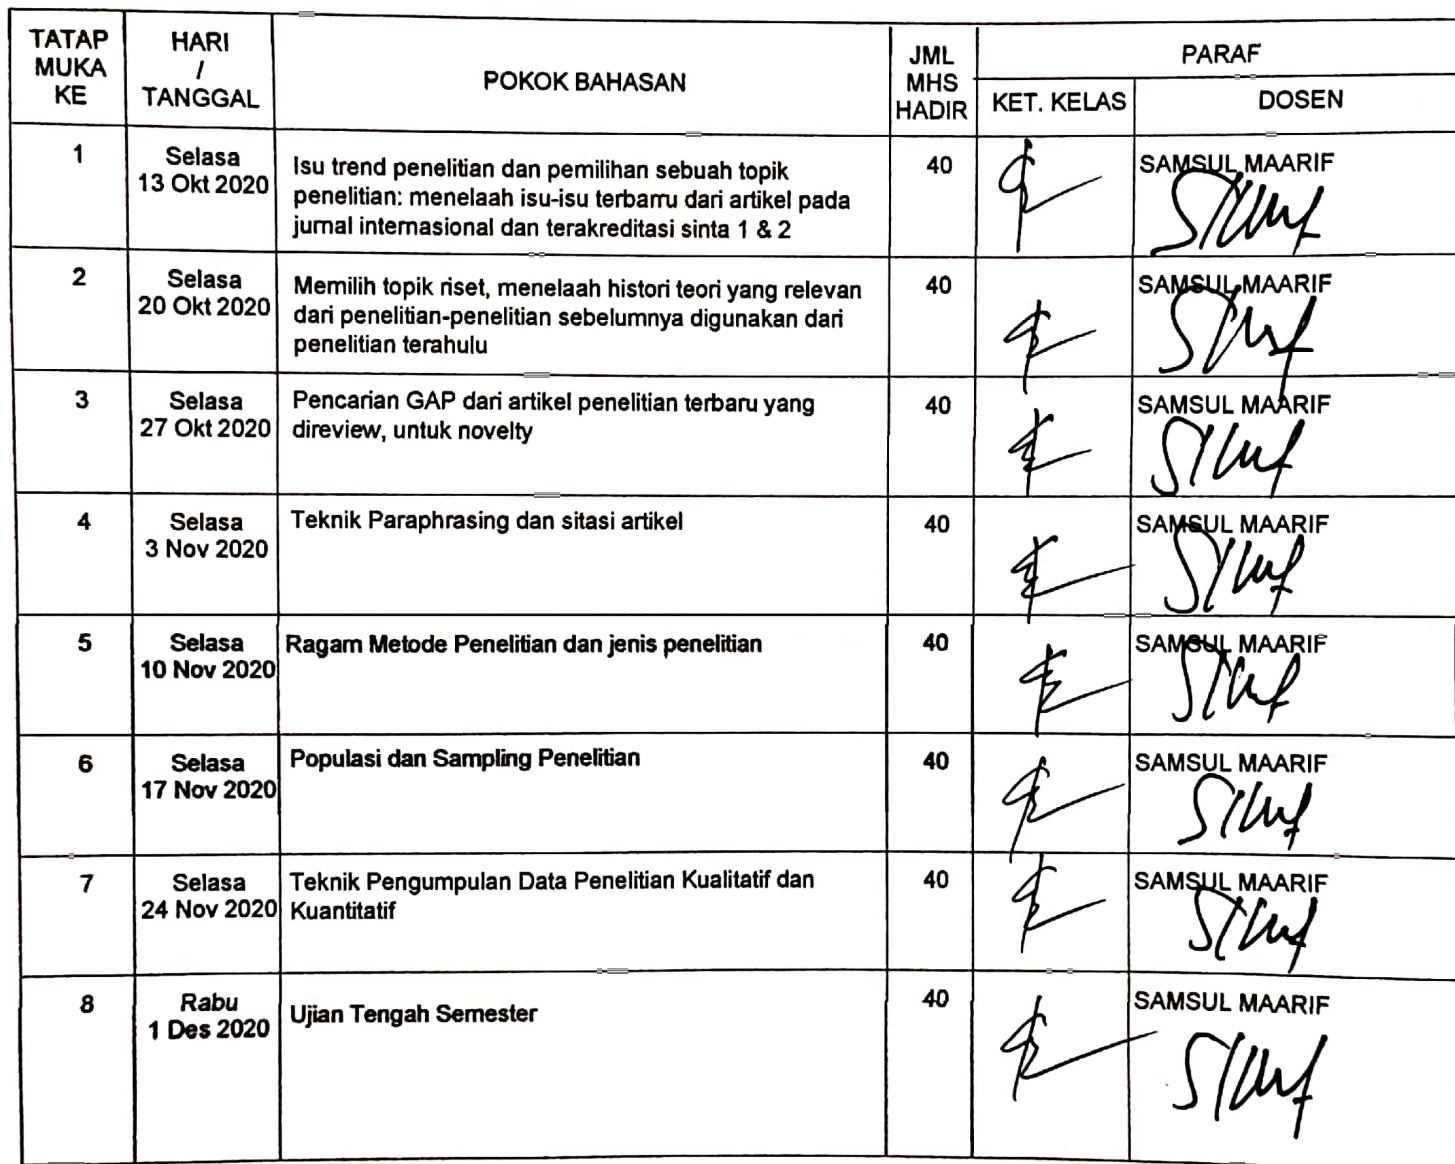 TATAP
MUKA
KE
HARI
/
TANGGAL
POKOK BAHASAN
JML
MHS
HADIR
PARAF
KET. KELAS
DOSEN
1
Selasa
13 Okt 2020
Isu trend penelitian dan pemilihan sebuah topik
penelitian: menelaah isu-isu terbarru dari artikel pada
jurnal internasional dan terakreditasi sinta 1 & 2
40
SAMSUL MAARIF
2
Selasa
20 Okt 2020
Memilih topik riset, menelaah histori teori yang relevan
dari penelitian-penelitian sebelumnya digunakan dari
penelitian terahulu
40
SAMSUL MAARIF
3
Selasa
27 Okt 2020
Pencarian GAP dari artikel penelitian terbaru yang
direview, untuk novelty
40
SAMSUL MAARIF
4
Selasa
3 Nov 2020
Teknik Paraphrasing dan sitasi artikel
40
SAMSUL MAARIF
5
Selasa
10 Nov 2020
Ragam Metode Penelitian dan jenis penelitian
40
SAMSUL MAARIF
6
Selasa
17 Nov 2020
Populasi dan Sampling Penelitian
40
SAMSUL MAARIF
7
Selasa
24 Nov 2020
Teknik Pengumpulan Data Penelitian Kualitatif dan
Kuantitatif
40
SAMSUL MAARIF
8
Rabu
1 Des 2020
Ujian Tengah Semester
40
SAMSUL MAARIF